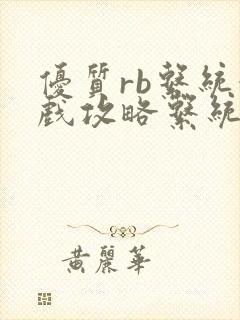 優質rb繫統
戲攻略繫統
黃麗華